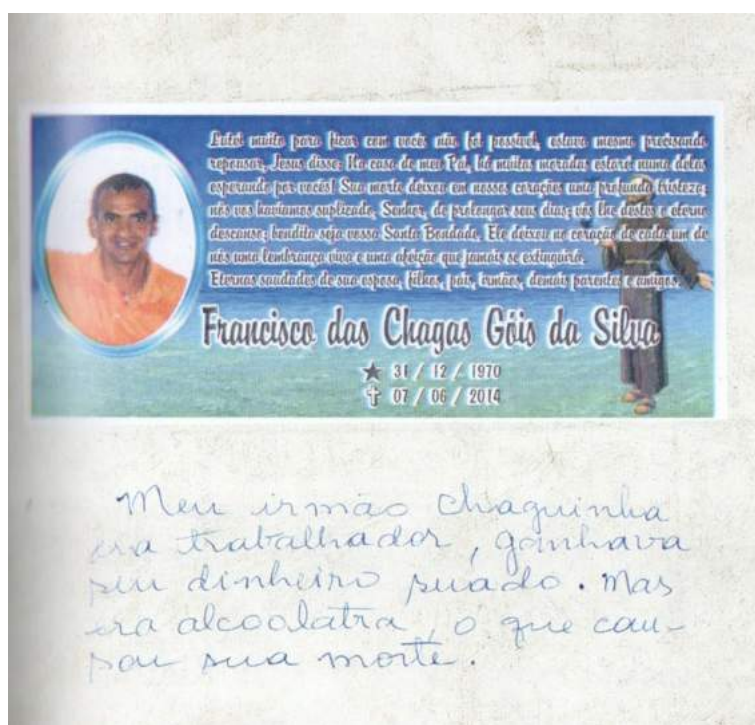 Lutei muito para ficar com vocês não foi possível, estava mesmo precisando
repousar, Jesus disse: Na casa de meu Pai, há muitas moradas estarei numa delas
esperando por vocês! Sua morte deixou em nossos corações uma profunda tristeza;
nós vos havíamos suplicado, Senhor, de prolongar seus dias; vós lhe destes o eterno
descanso; bendita seja vossa Santa Bondade. Ele deixou no coração de cada um de
nós uma lembrança viva e uma afeição que jamais se extinguirá.
Eternas saudades de sua esposa, filhos, pais, irmãos, demais parentes e amigos.
Francisco das Chagas Góis da Silva
★ 31 / 12 / 1970
✝ 07 / 06 / 2014
Meu irmão Chaguinha
era trabalhador, ganhava
seu dinheiro suado. Mas
era alcoolatra, o que cau-
sou sua morte.